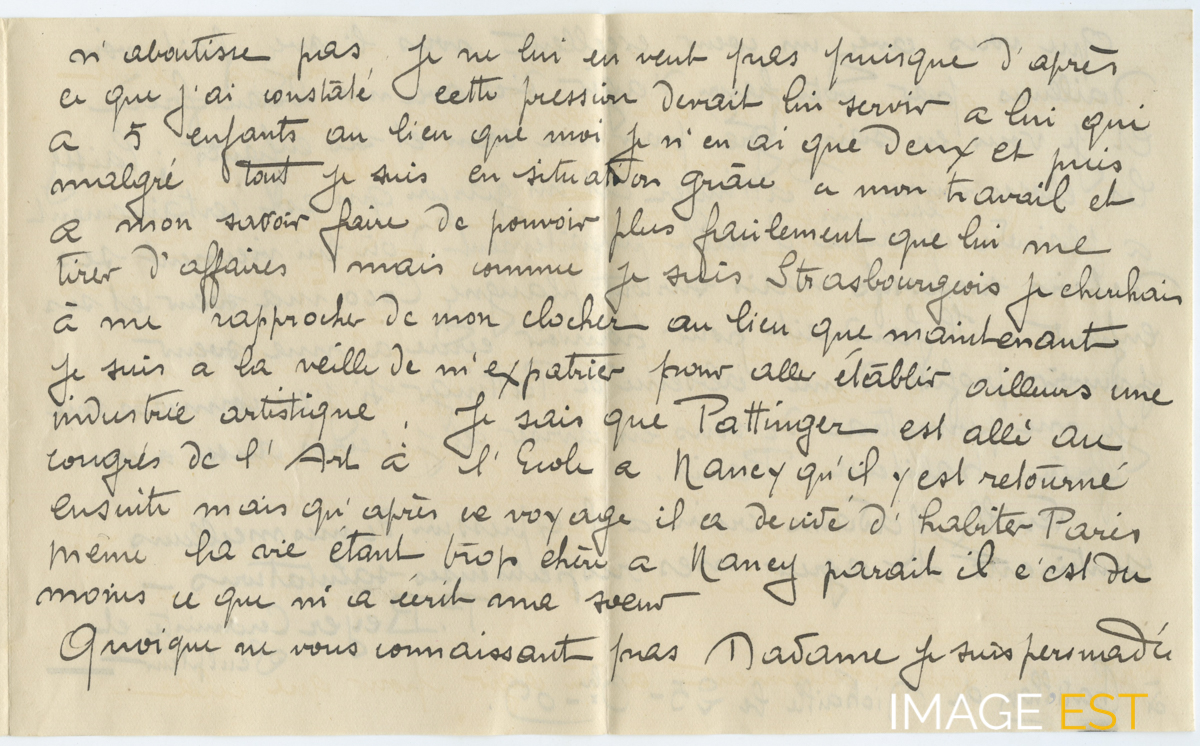 n'aboutisse pas je ne lui en veut pas puisque d'après
ce que j'ai constaté cette pression devait lui servir a lui qui
a 5 enfants au lieu que moi je n'en ai que deux et puis
malgré tout je suis en situation grâce a mon travail et
a mon savoir faire de pouvoir plus facilement que lui me
tirer d'affaires mais comme je suis Strasbourgeois je cherchais
à me rapprocher de mon clocher au lieu que maintenant
je suis a la veille de m'expatrier pour aller établir ailleurs une
industrie artistique. Je sais que Pattinger est allé au
congrés de l'Art à l'Ecole a Nancy qu'il y est retourné
ensuite mais qu'après ce voyage il a décidé d'habiter Paris
même la vie étant trop chère a Nancy parait il c'est du
moins ce que m'a écrit ma soeur
Quoique ne vous connaissant pas Madame je suis persuadée
IMAGE EST